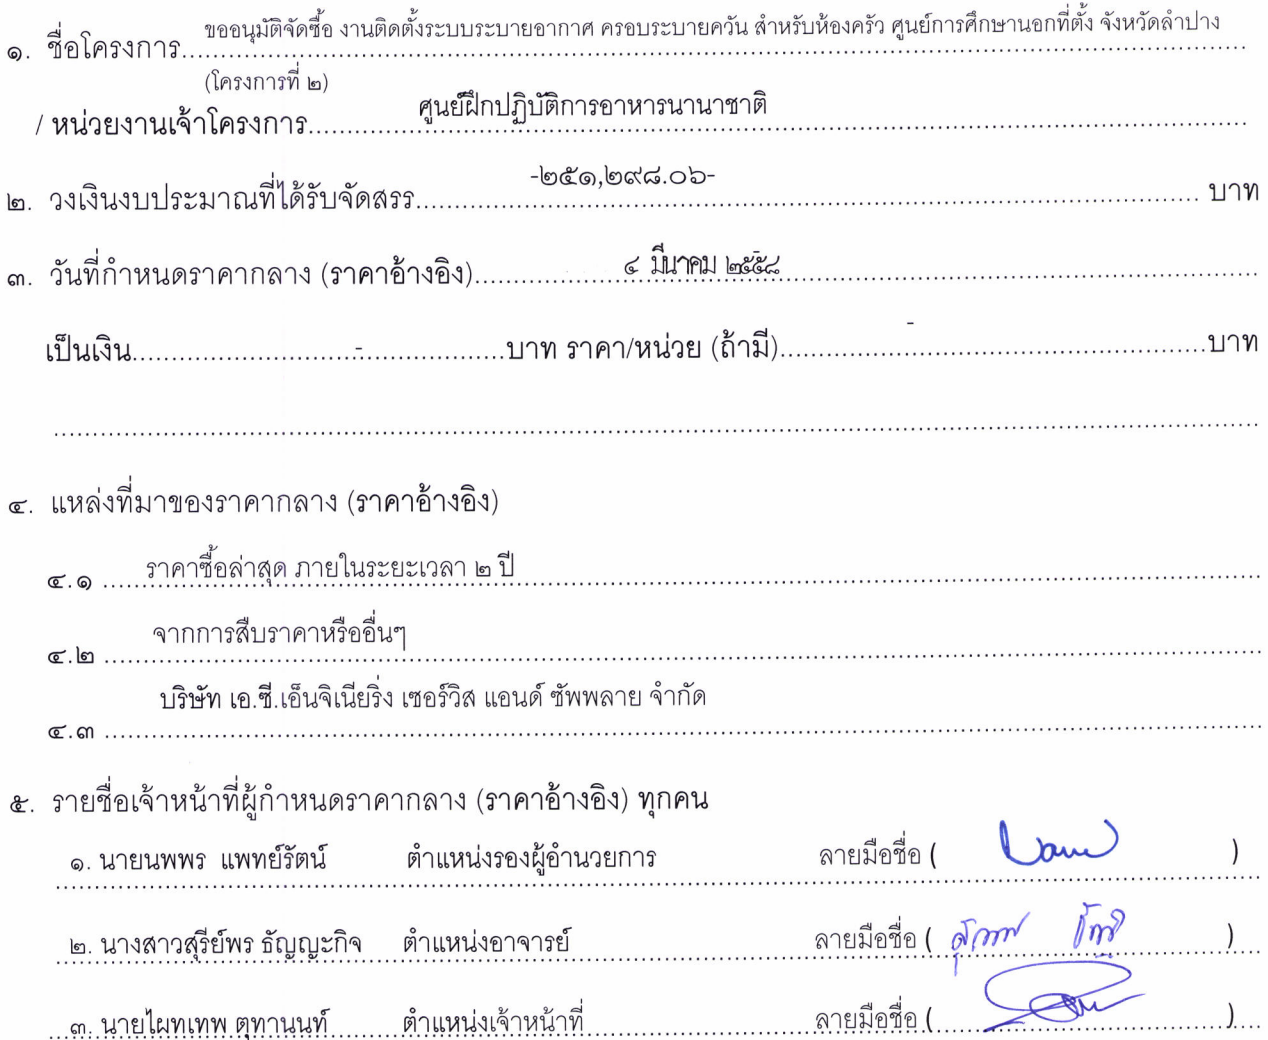 ๑. ชื่อโครงการ ขออนุมัติจัดซื้อ งานติดตั้งระบบระบายอากาศ ครอบระบายควัน สำหรับห้องครัว ศูนย์การศึกษานอกที่ตั้ง จังหวัดลำปาง
(โครงการที่ ๒)
/ หน่วยงานเจ้าโครงการ ศูนย์ฝึกปฏิบัติการอาหารนานาชาติ
๒. วงเงินงบประมาณที่ได้รับจัดสรร -๒๕๑,๒๙๘.๐๖- บาท
๓. วันที่กำหนดราคากลาง (ราคาอ้างอิง) ๔ มีนาคม ๒๕๕๘
เป็นเงิน - บาท ราคา/หน่วย (ถ้ามี) - บาท
๔. แหล่งที่มาของราคากลาง (ราคาอ้างอิง)
๔.๑ ราคาซื้อล่าสุด ภายในระยะเวลา ๒ ปี
๔.๒ จากการสืบราคาหรืออื่นๆ
๔.๓ บริษัท เอ.ซี.เอ็นจิเนียริ่ง เซอร์วิส แอนด์ ซัพพลาย จำกัด
๕. รายชื่อเจ้าหน้าที่ผู้กำหนดราคากลาง (ราคาอ้างอิง) ทุกคน
๑. นายนพพร แพทย์รัตน์ ตำแหน่งรองผู้อำนวยการ ลายมือชื่อ ( )
๒. นางสาวสุรีย์พร ธัญญะกิจ ตำแหน่งอาจารย์ ลายมือชื่อ ( )
๓. นายไผทเทพ ตุทานนท์ ตำแหน่งเจ้าหน้าที่ ลายมือชื่อ ( )